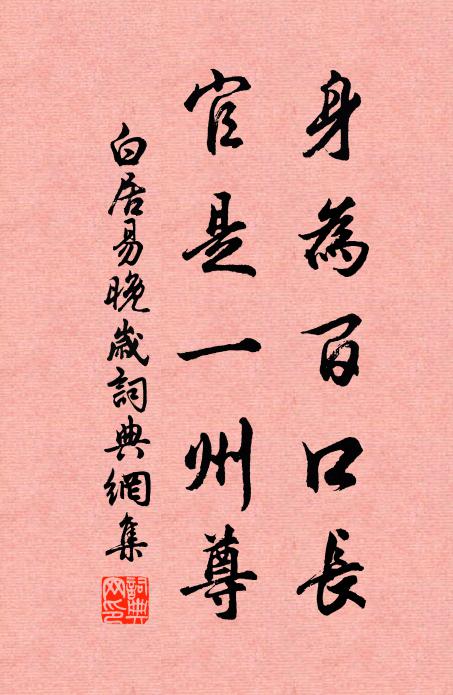 身為百口長
官是一州尊
白居易晚歲詞典網集
詞典網印